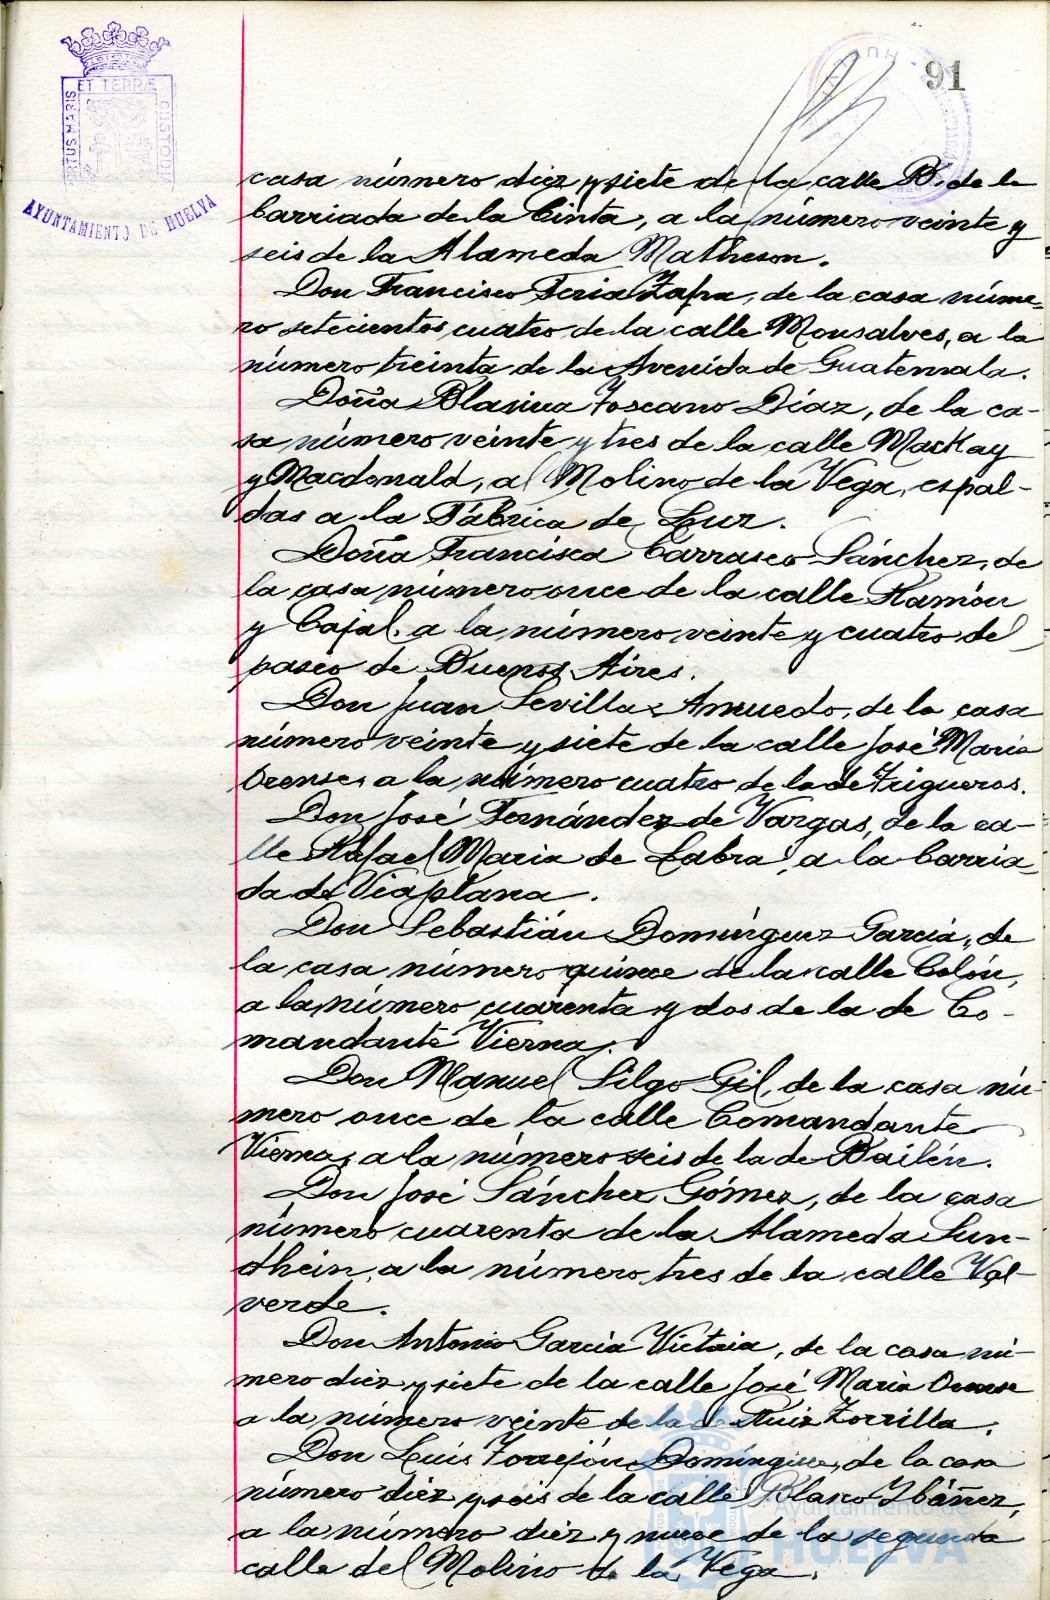 91
PORTUS MARIS ET TERRÆ CUSTODIA
AYUNTAMIENTO DE HUELVA
casa número diez y siete de la calle B. de la
barriada de la Cinta, a la número veinte y
seis de la Alameda Matheson.
Don Francisco Feria Zafra, de la casa núme-
ro setecientos cuatro de la calle Monsalves, a la
número treinta de la Avenida de Guatemala.
Doña Blasina Toscano Díaz, de la ca-
sa número veinte y tres de la calle Mackay
y Macdonald, al Molino de la Vega, espal-
das a la Fábrica de Luz.
Doña Francisca Carrasco Sánchez, de
la casa número once de la calle Ramón
y Cajal, a la número veinte y cuatro del
paseo de Buenos Aires.
Don Juan Sevilla Amuedo, de la casa
número veinte y siete de la calle José María
Orense, a la número cuatro de la de Trigueros.
Don José Fernández de Vargas, de la ca-
lle Rafael María de Labra, a la barria-
da de Viaplana.
Don Sebastián Domínguez García, de
la casa número quince de la calle Colón,
a la número cuarenta y dos de la de Co-
mandante Vierna.
Don Manuel Silgo Gil, de la casa nú-
mero once de la calle Comandante
Vierna, a la número seis de la de Bailén.
Don José Sánchez Gómez, de la casa
número cuarenta de la Alameda Sun-
dhein, a la número tres de la calle Val-
verde.
Don Antonio García Victoria, de la casa nú-
mero diez y siete de la calle José María Orense
a la número veinte de la de Ruiz Zorrilla.
Don Luis Torrejón Domínguez, de la casa
número diez y seis de la calle Blasco Ibáñez,
a la número diez y nueve de la segunda
calle del Molino de la Vega.
Ayuntamiento de
HUELVA